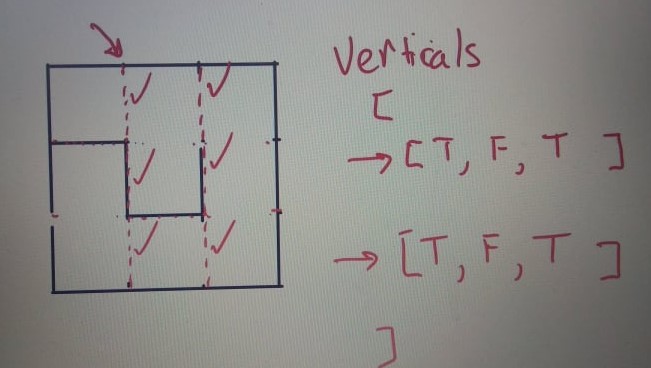 Verticals
[
→ [T, F, T ]
→ [T, F, T ]
]